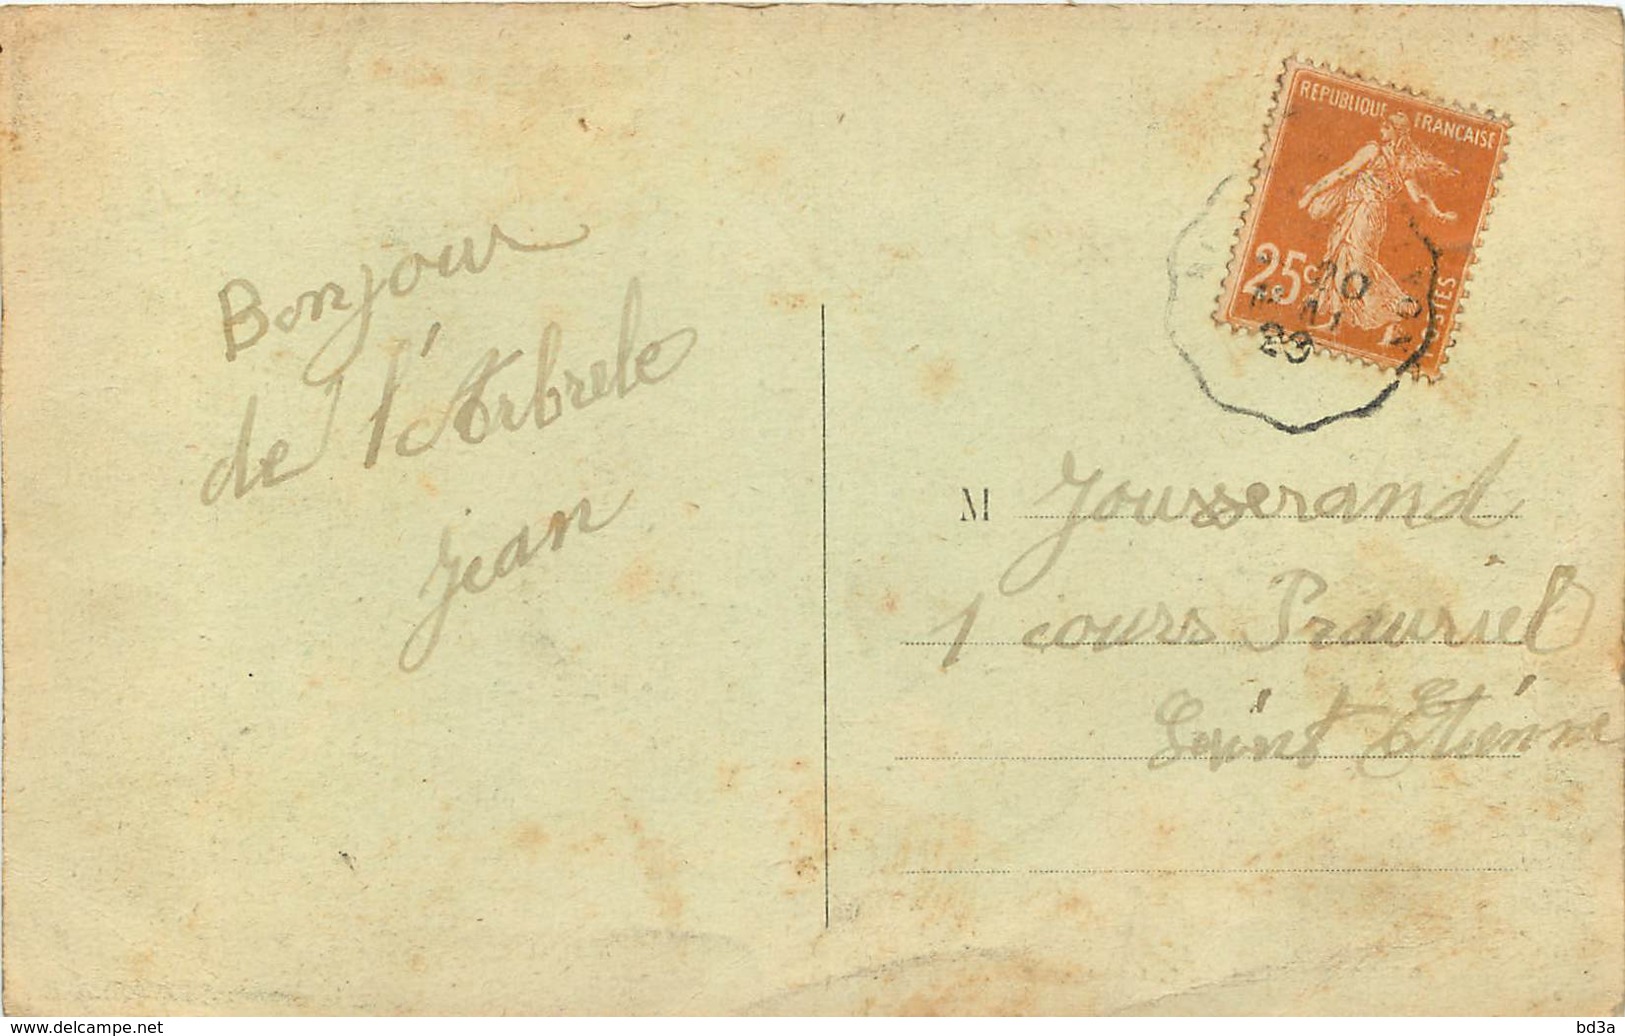 Bonjour
de l'Arbrele
Jean
REPUBLIQUE FRANCAISE
25c
POSTES
10
23
M Jousserand
1 cours
Saint Etienne
delcampe.net
bd3a